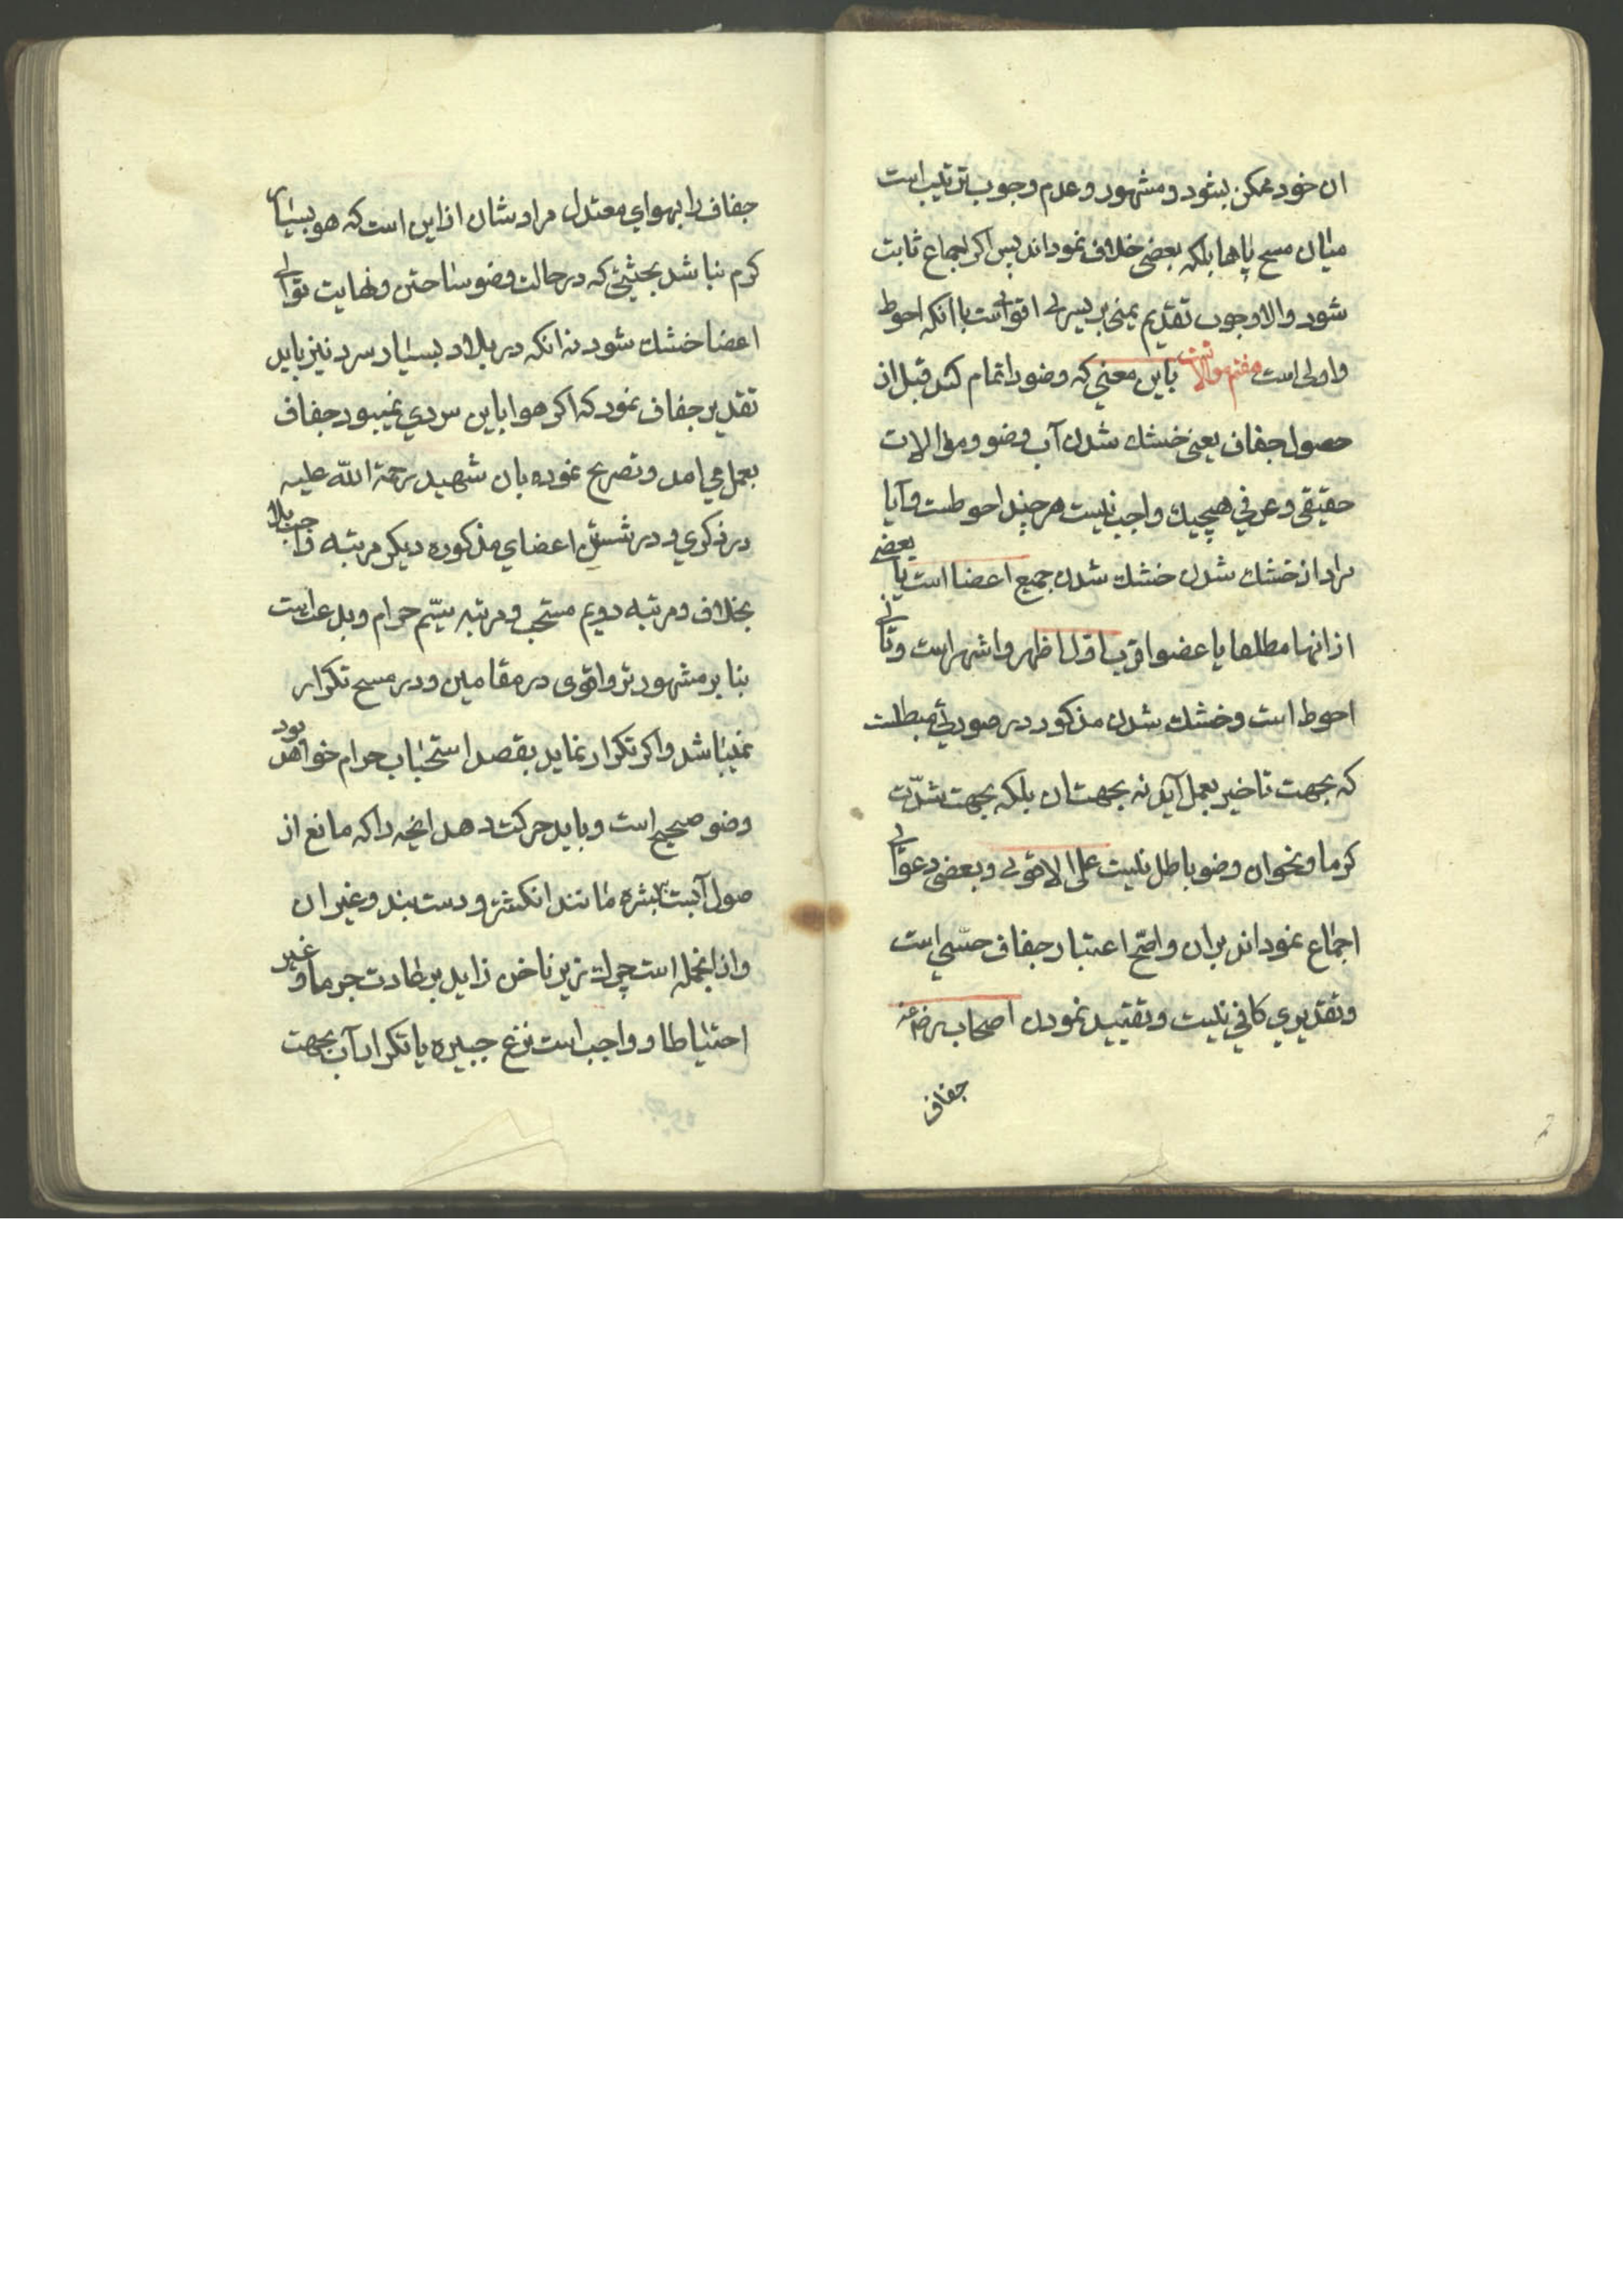 ان خود ممکن بشود و مشهور و عدم وجوب ترتیب است
میان مسح پاها بلکه بعضی خلاف نمودهاند پس اکر اجماع ثابت
شود والا وجوب تقدیم یمنی بر یسری اقوی است با آنکه احوط
و اولی است هفتم موالات باین معنی که وضو را تمام کند قبل از
حصول جفاف یعنی خشك شدن آب وضو و موالات
حقیقی و عرفی هیچیك واجب نیست هر چند احوطست و آیا
مراد از خشك شدن خشك شدن جمیع اعضا است یا بعضی
از انها مطلقا یا عضو اقرب اول اظهر و اشهر است و ثانی
احوط است و خشك شدن مذکور در صورتی مبطلست
که بجهت تاخیر بعمل آید نه بجهت ان بلکه بجهت شدّت
کرما و نحو ان وضو باطل نیست علی الاقوی و بعضی دعوای
اجماع نموداند بران و اصحّ اعتبار جفاف حسّی است
و تقدیری کافی نیست و تقیید نمودن اصحاب رض
جفاف
جفاف را بهوای معتدل مرادشان از این است که هو بسیار
کرم نباشد بحیثیتی که در حالت وضو ساختن و نهایت توالی
اعضا خشك شود نه انکه در بلاد بسیار سرد نیز باید
تقدیر جفاف نمود که اکر هوا باین سردی نمیبود جفاف
بعمل می امد و تصریح نموده بان شهید رحمة اللّه علیه
در ذکری و در شستن اعضای مذکوره دیکر مرتبه واجب بلا
بخلاف و مرتبه دویم مستحب و مرتبه سیّم حرام و بدعت است
بنا بر مشهورتر و اقوی در مقامین و در مسح تکرار
نمیباشد و اکر تکرار نماید بقصد استحباب حرام خواهد بود
وضو صحیح است و باید حرکت دهد انچه را که مانع از
صول آبست ببشره مانند انکشتر و دست بند و غیر ان
و از انجمله است چرك زیر ناخن زاید بر عادت جرما و غیر
احتیاطا و واجب است نزع جبیره یا تکرار آب بجهت